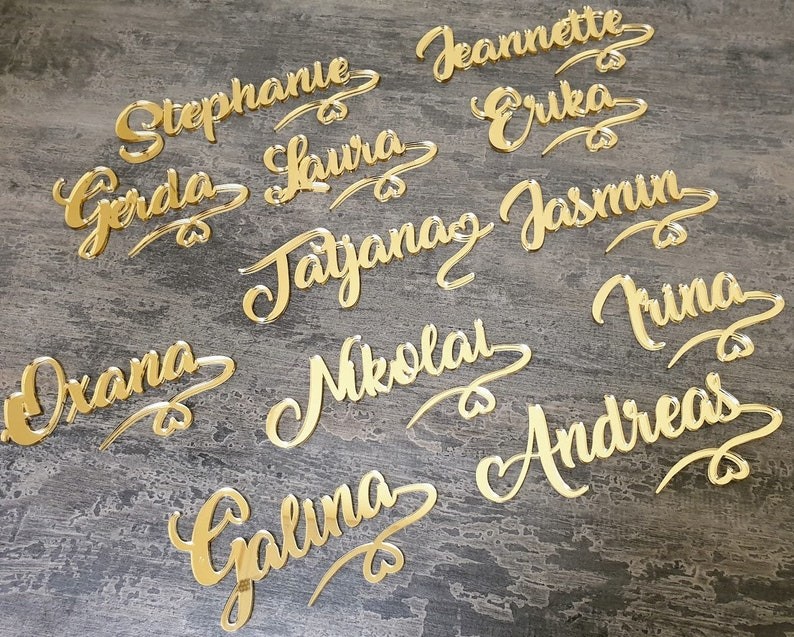 Jeannette
Stephanie
Erika
Laura
Gerda
Jasmin
Tatjana
Irina
Nikolai
Oxana
Andreas
Galina